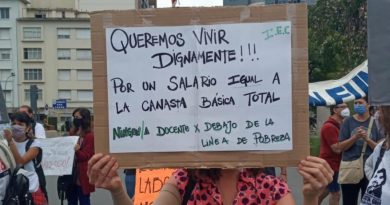 QUEREMOS VIVIR
DIGNAMENTE!!!
I.E.C
POR UN SALARIO IGUAL A
LA CANASTA BÁSICA TOTAL
NINGUN/A DOCENTE X DEBAJO DE LA
LINEA DE POBREZA